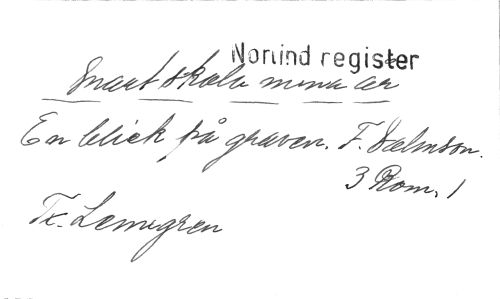 Norlind register
Snart skola mina år
En blick på graven. F. Dalmson.
3 Rom. 1
Tx. Lenngren